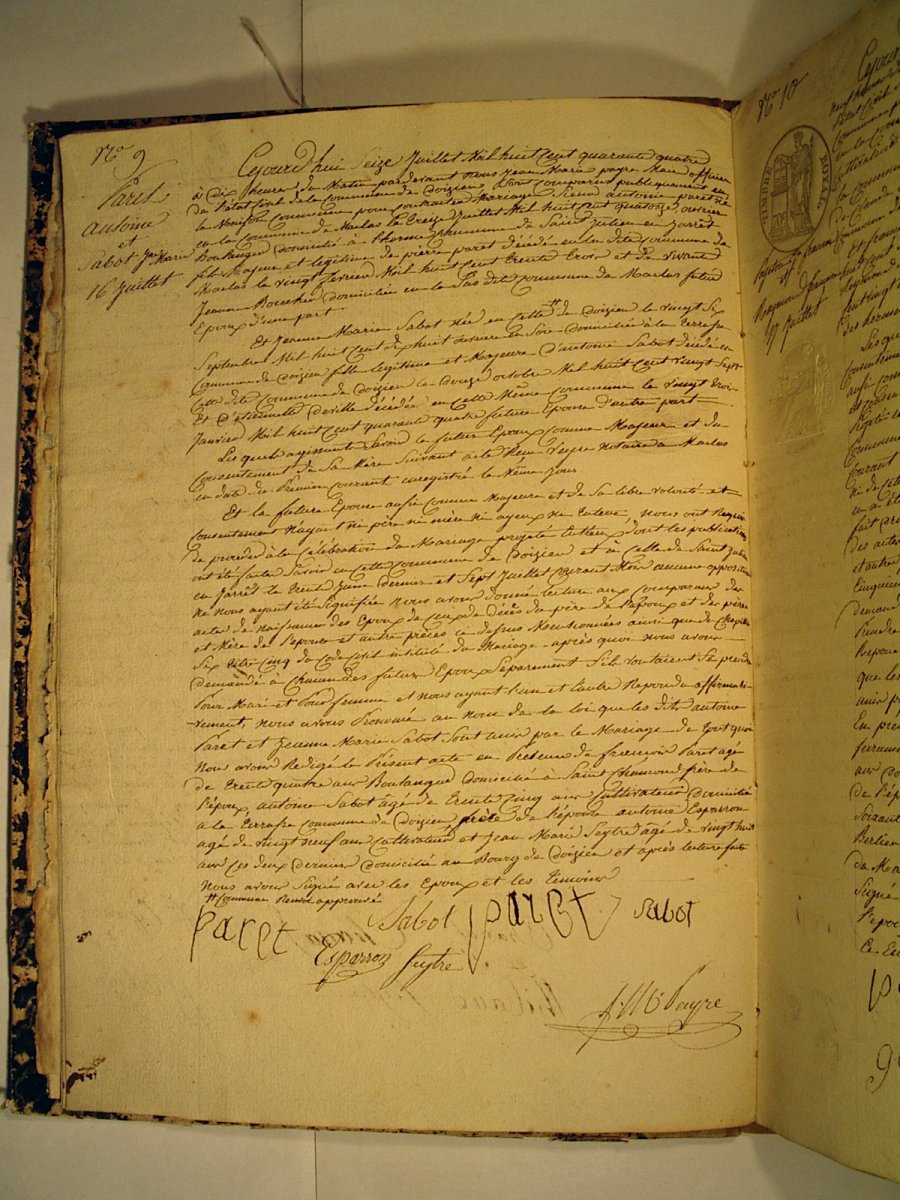 N° 9
Paret
antoine
et
Sabot Jne Marie
16 Juillet
Cejourd'hui Seize Juillet Mil huit Cent quarante quatre
à Dix heures du Matin pardevant Nous Jean Marie payre Maire officier
de l'état Civil de la Commune de Doizieu Sont comparus publiquement en
la Maison Commune pour contracter Mariage antoine paret né
en la Commune de Maclas le Treize Juillet Mil huit Cent quatorze ouvrier
Boulanger Domicilié à Commune de Saint Julien en Jarret
fils Majeur et légitime de pierre paret décédé en la dite Commune de
Maclas le vingt fevrier Mil huit Cent Trente Trois et de vivante
Jeanne Boucher Domiciliée en la Sus dite Commune de Maclas futur
Epoux d'une part
Et Jeanne Marie Sabot Née en Cette # de Doizieu le vingt Six
Septembre Mil huit Cent dix huit ouvriere en Soie Domiciliée à la Terrasse
Commune de Doizieu fille légitime et Majeure d'antoine Sabot décédé en
Cette dite Commune de Doizieu le Douze octobre Mil huit Cent vingt Sept
Et D'etiennette Deville décédée en Cette Même Commune le vingt Trois
Janvier Mil huit Cent quarante quatre future Epouse D'autre part
Lesquels agissant Savoir le futur Epoux Comme Majeur et du
Consentement de Sa Mère Suivant acte Reçu Veyre Notaire à Maclas
en date du Premier Courant enregistré le Même Jour
Et la future Epouse aussi Comme Majeure et de Sa libre volonté et
Consentement N'ayant Ni père Ni mère Ni ayeux Ni Tuteur, Nous ont Requis
de procéder à la Célébration du Mariage projeté entr'eux, dont les publications
ont été faites Savoir en Cette Commune de Doizieu et en Celle de Saint Julien
en Jarret le Trente Juin dernier et Sept Juillet Courant Mois aucune opposition
ne Nous ayant été Signifiée Nous avons donné lecture aux Comparans des
actes de Naissance des Epoux de Ceux de Décès du père de l'époux et des père
et Mère de l'épouse et autre pièces Ci dessus Mentionnées ainsi que du Chapitre
Six Titre Cinq du Code Civil intitulé du Mariage après quoi Nous avons
demandé à Chacun des futurs Epoux Séparement S'ils voulaient Se prendre
Pour Mari et Pour femme et Nous ayant l'un et l'autre Répondu affirmati-
vement, Nous avons Prononcé au Nom de la loi que les dits antoine
Paret et Jeanne Marie Sabot Sont unis par le Mariage de Tout quoi
Nous avons Rédigé le Présent acte en Présence de francois Paret agé
de Trente quatre ans Boulanger Domicilié à Saint Chamond frère de
l'époux antoine Sabot agé de Trente Cinq ans Cultivateur Domicilié
à la Terrasse Commune de Doizieu frère de l'épouse antoine Esparron
agé de vingt Neuf ans Cultivateur et Jean Marie Seytre agé de vingt huit
ans Ces deux Derniers Domicilié au Bourg de Doizieu et après lecture faite
Nous avons Signé avec les Epoux et les Temoins
# Commune Renvoi approuvé
Paret Sabot paret Sabot
Esparron Seytre
J. M. Payre
N° 10
TIMBRE ROYAL
17 Juillet